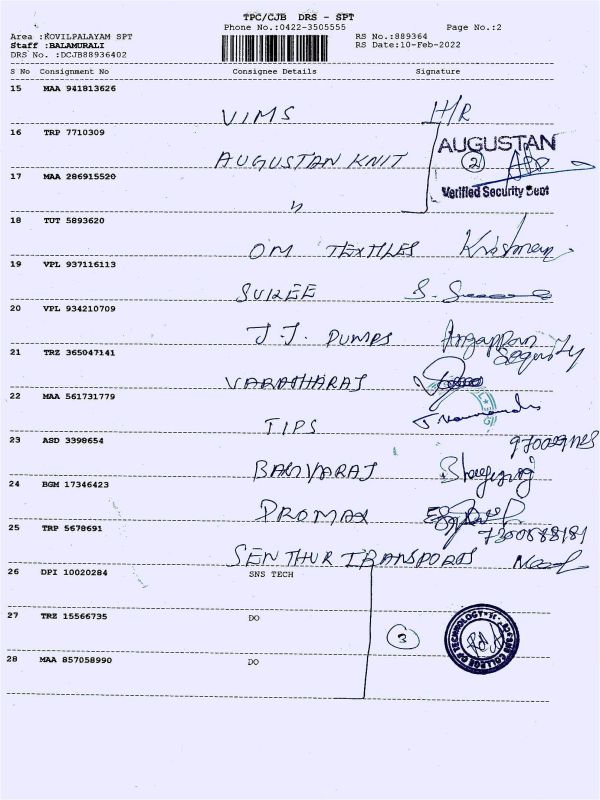 TPC/CJB DRS - SPT
Phone No.:0422-3505555 Page No.:2
Area :KOVILPALAYAM SPT RS No.:889364
Staff :BALAMURALI RS Date:10-Feb-2022
DRS No. :DCJB88936402
S No Consignment No Consignee Details Signature
15 MAA 941813626
VIMS H/R
16 TRP 7710309
AUGUSTAN KNIT AUGUSTAN
2
17 MAA 286915520
Verified Security Dept
"
18 TUT 5893620
OM TEXTILES
19 VPL 937116113
SUREE S.
20 VPL 934210709
J.J. PUMPS Angappan
Security
21 TRZ 365047141
VARATHARAJ
22 MAA 561731779
TIPS
23 ASD 3398654
24 BGM 17346423
PROMAX
25 TRP 5678691
SENTHUR TRANSPORTS
26 DPI 10020284 SNS TECH
27 TRZ 15566735 DO
3
COLLEGE OF TECHNOLOGY
28 MAA 857058990 DO